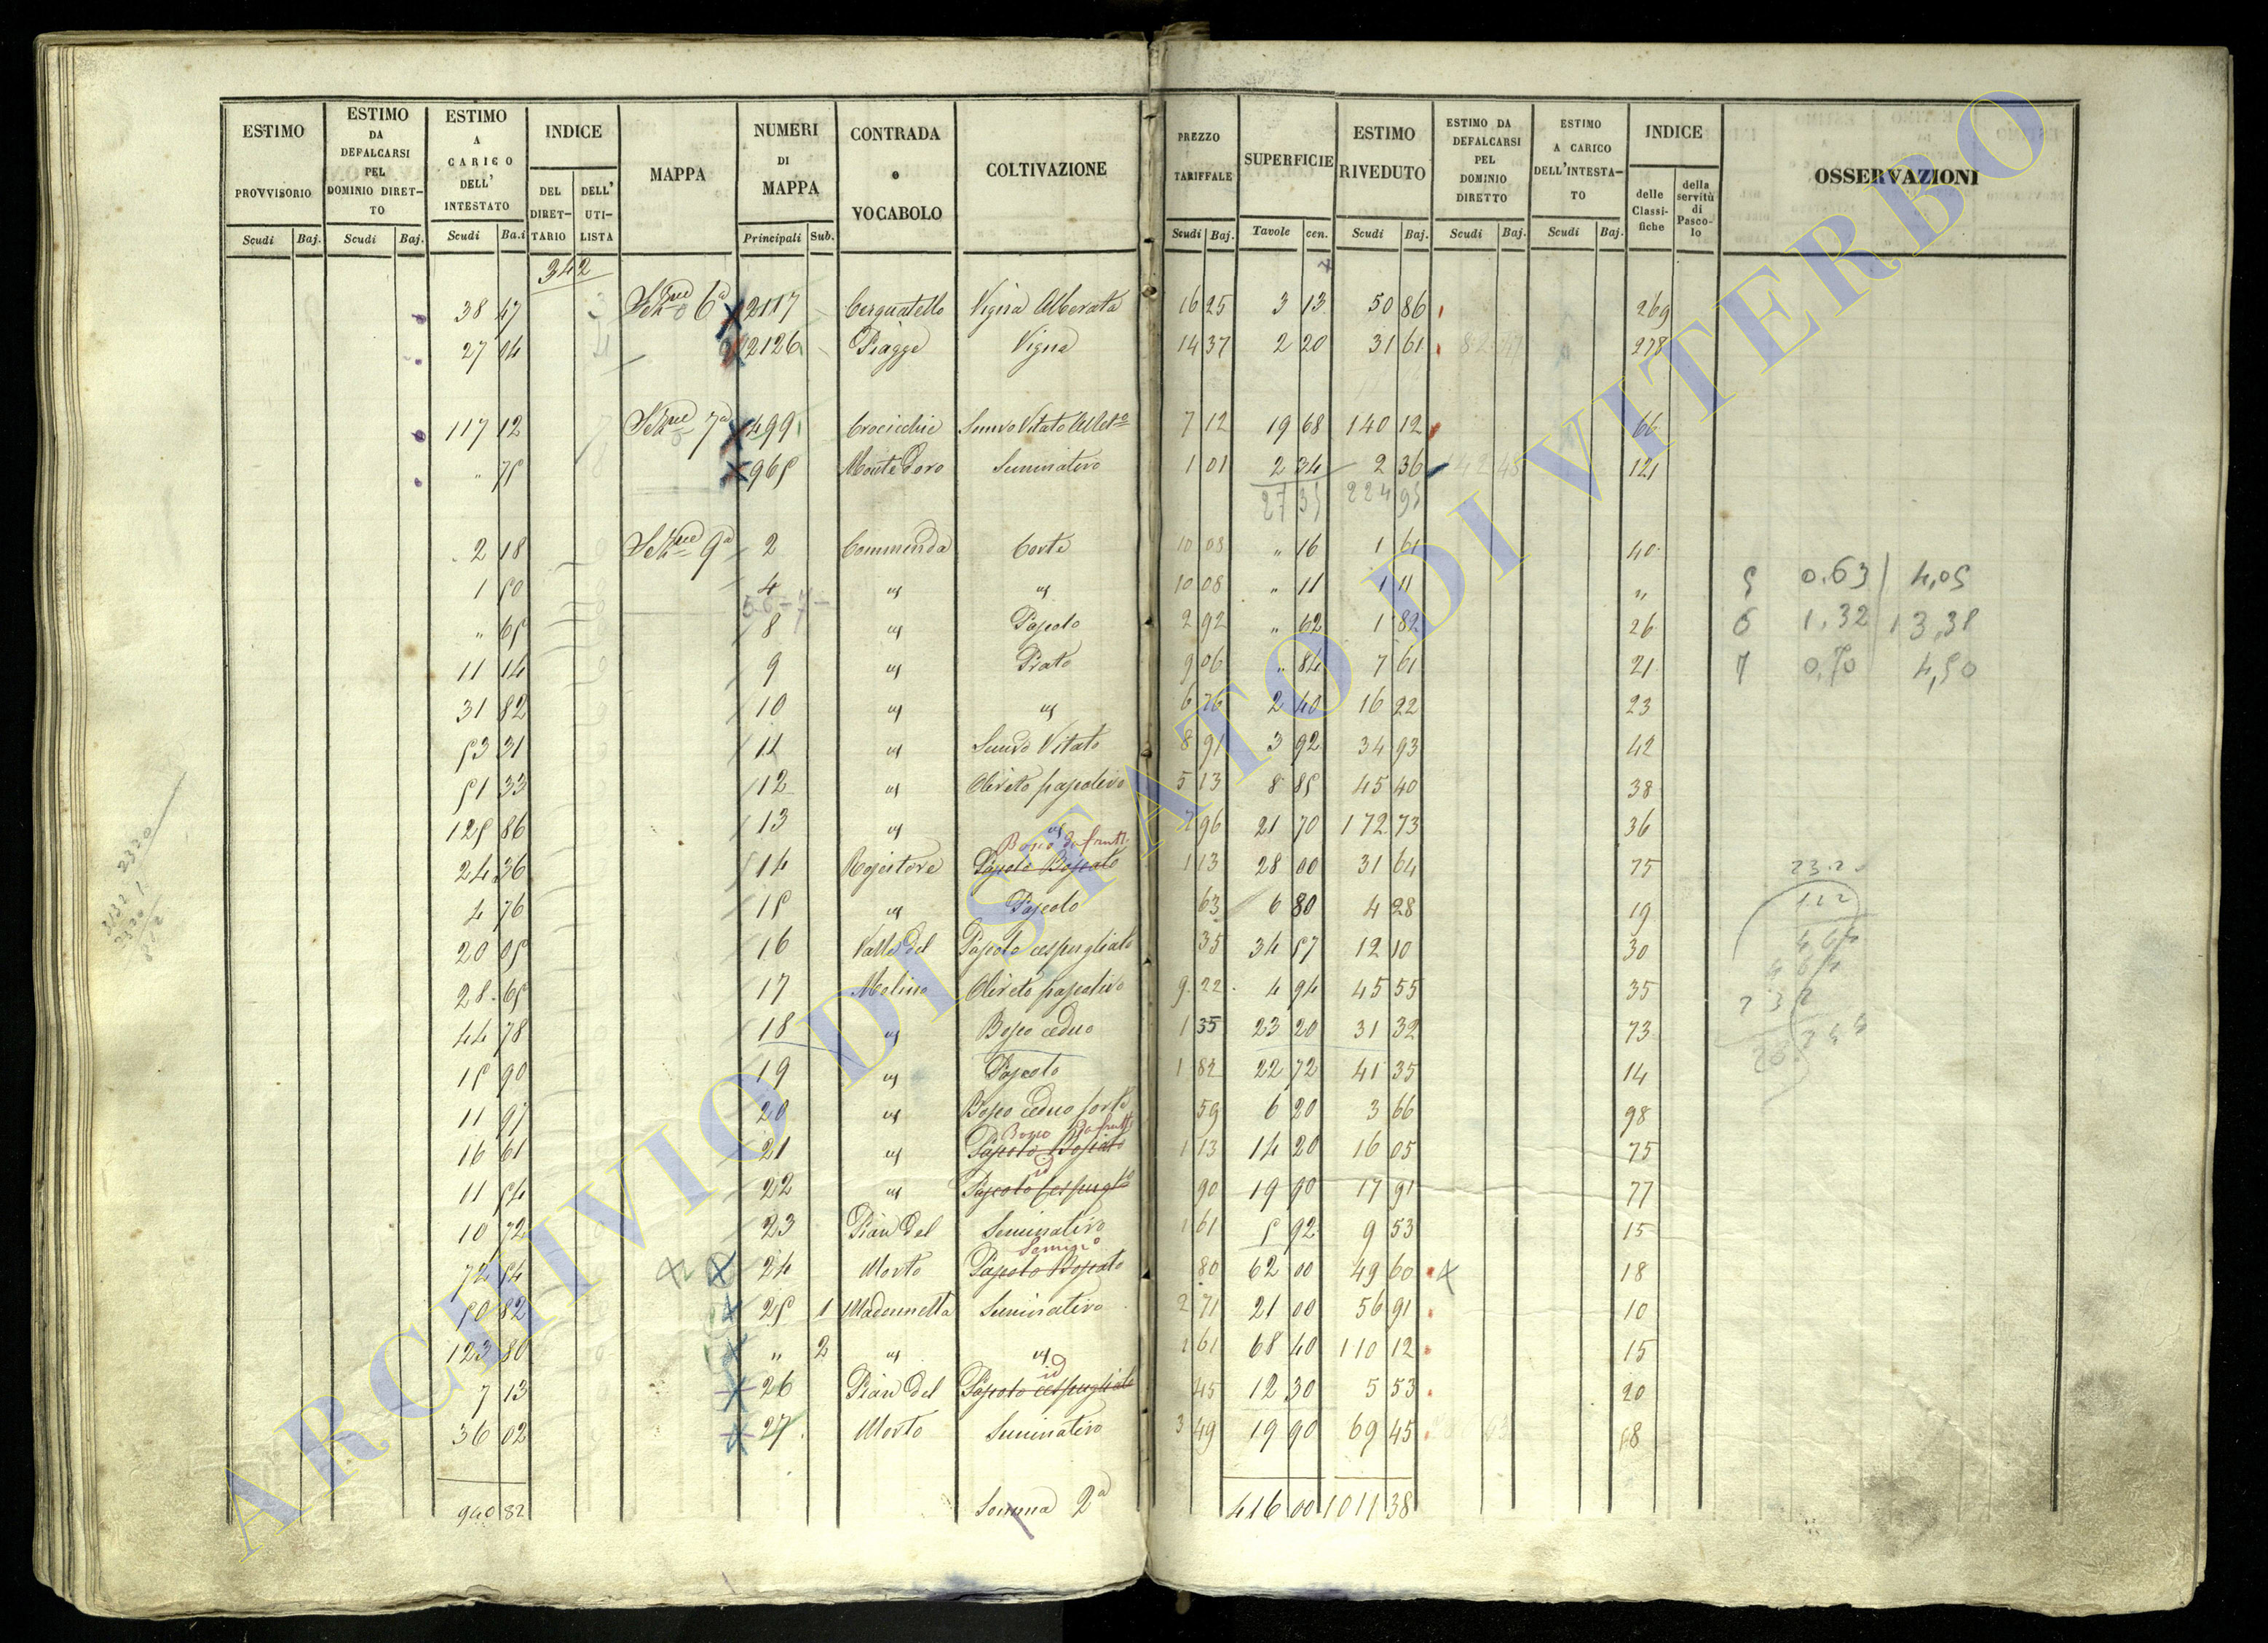 ESTIMO PROVVISORIO Scudi Baj.
ESTIMO DA DEFALCARSI PEL DOMINIO DIRET-TO Scudi Baj.
ESTIMO A CARICO DELL' INTESTATO Scudi Ba.i
INDICE DEL DIRET-TARIO DELL' UTI-LISTA
MAPPA
NUMERI DI MAPPA Principali Sub.
CONTRADA o VOCABOLO
COLTIVAZIONE
PREZZO TARIFFALE Scudi Baj.
SUPERFICIE Tavole cen.
ESTIMO RIVEDUTO Scudi Baj.
ESTIMO DA DEFALCARSI PEL DOMINIO DIRETTO Scudi Baj.
ESTIMO A CARICO DELL'INTESTA-TO Scudi Baj.
INDICE delle Classi-fiche della servitù di Pasco-lo
OSSERVAZIONI
342
38 47 6a 2117 Cerquatello Vigna Alberata 16 25 3 13 50 86 269
27 04 2126 Piagge Vigna 14 37 2 20 31 61 278
117 12 7a 499 Crocicchie Semvo Vitato 7 12 19 68 140 12 66
" 75 965 Monte Doro Seminativo 1 01 2 34 2 36 121
27 35 224 95
2 18 9a 2 Commenda Corte 10 08 " 16 1 61 40
1 50 4 " " 10 08 " 11 1 11 "
5 0.63 4,05
5-6-7
" 65 8 " Pascolo 2 92 " 62 1 82 26
6 1,32 13,38
11 14 9 " Prato 9 06 " 84 7 61 21
7 0,70 4,50
31 82 10 " " 6 76 2 40 16 22 23
53 31 11 " Semvo Vitato 8 91 3 92 34 93 42
51 33 12 " Oliveto pascolivo 5 13 8 85 45 40 38
125 86 13 " " 7 96 21 70 172 73 36
Bosco da frutt.
24 36 14 Pascolo Boscato 1 13 28 00 31 64 75
4 76 15 " Pascolo 63 6 80 4 28 19
20 05 16 Valle del Pascolo cespugliato 35 34 57 12 10 30
28 65 17 Molino Oliveto pascolivo 9 22 4 94 45 55 35
44 78 18 " Bosco ceduo 1 35 23 20 31 32 73
15 90 19 " Pascolo 1 82 22 72 41 35 14
11 97 20 " Bosco ceduo forte 59 6 20 3 66 98
Bosco da frutt.
16 61 21 " Pascolo Boscato 1 13 14 20 16 05 75
id
11 54 22 " Pascolo Cespugto 90 19 90 17 91 77
10 72 23 Pian del Seminativo 1 61 5 92 9 53 15
72 54 24 Morto Pascolo Boscato 80 62 00 49 60 18
50 82 25 1 Madonnetta Seminativo 2 71 21 00 56 91 10
123 80 " 2 " " 1 61 68 40 110 12 15
id
7 13 26 Pian del Pascolo cespugliato 45 12 30 5 53 20
36 02 27 Morto Seminativo 3 49 19 90 69 45 8
940 82 Somma 2a 416 00 1011 38
ARCHIVIO DI STATO DI VITERBO